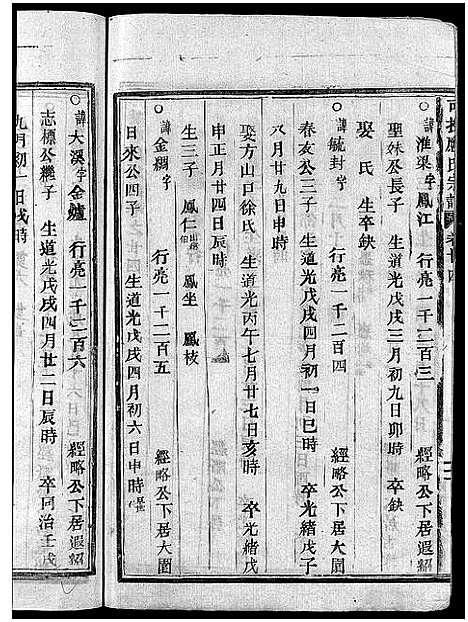 可投應氏宗譜 卷廿四
○諱淮渠字鳳江 行亮一千二百三 經略公下居遐紹
聖妹公長子 生道光戊戌三月初九日卯時 卒缺
娶氏 生卒缺
○諱毓封字 行亮一千二百四 經略公下居大園
春友公三子 生道光戊戌四月初一日巳時 卒光緒戊子
八月廿九日申時
娶方山口徐氏 生道光丙午七月廿七日亥時 卒光緒戊
申正月廿四日辰時
生三子 鳳仁 鳳坐 鳳枝
○諱金稠字 行亮一千二百五 經略公下居大園
日來公四子 生道光戊戌四月初六日申時
○諱大溪字金爐 行亮一千二百六 經略公下居遐紹
志標公繼子 生道光戊戌四月廿二日辰時 卒同治壬戌
九月初一日戌時